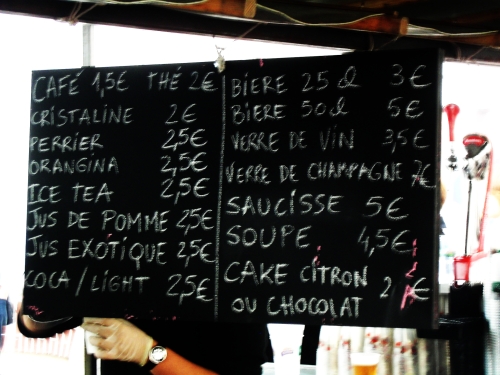 CAFÉ 1,5€ THÉ 2€
CRISTALINE 2€
PERRIER 2,5€
ORANGINA 2,5€
ICE TEA 2,5€
JUS DE POMME 2,5€
JUS EXOTIQUE 2,5€
COCA/LIGHT 2,5€
BIERE 25 cl 3€
BIERE 50 cl 5€
VERRE DE VIN 3,5€
VERRE DE CHAMPAGNE 7€
SAUCISSE 5€
SOUPE 4,5€
CAKE CITRON 2€
OU CHOCOLAT